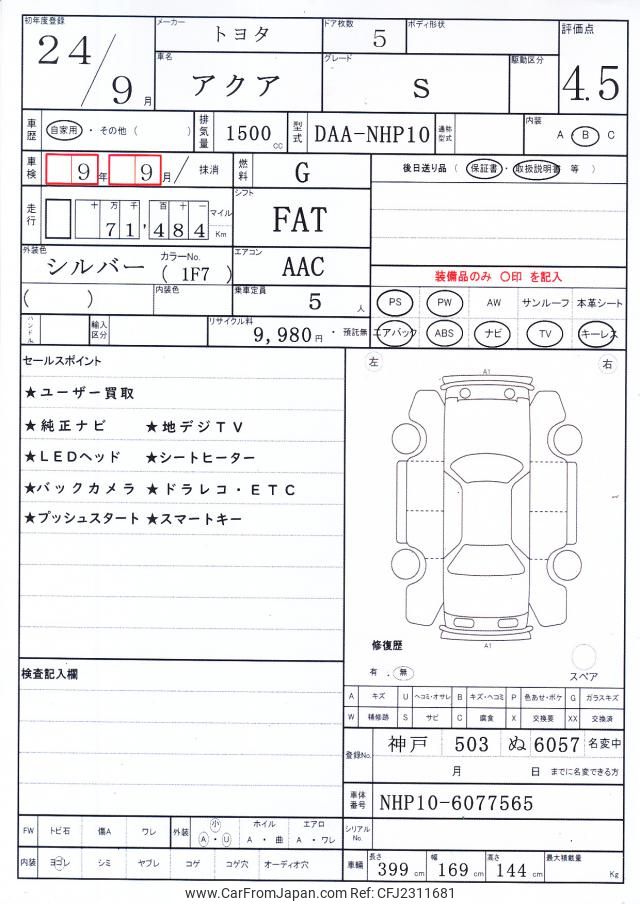 初年度登録 メーカー トヨタ ドア枚数 5 ボディ形状 評価点
24/9月 車名 アクア グレード S 駆動区分 4.5
車歴 自家用・その他( ) 排気量 1500cc 型式 DAA-NHP10 通称型式 内装 A B C
車検 9年 9月 / 抹消 燃料 G 後日送り品( 保証書・取扱説明書 等 )
走行 十 万 千 百 十 一 マイル シフト
71,484 Km FAT
外装色 シルバー カラーNo. ( 1F7 ) エアコン AAC 装備品のみ 〇印 を記入
( ) 内装色 乗車定員 5人 PS PW AW サンルーフ 本革シート
ハンドル 輸入区分 リサイクル料 9,980円・預託無 エアバック ABS ナビ TV キーレス
セールスポイント 左 右
★ユーザー買取 A1
★純正ナビ ★地デジTV
★LEDヘッド ★シートヒーター
★バックカメラ ★ドラレコ・ETC
★プッシュスタート ★スマートキー
修復歴 A1
有 . 無 スペア
検査記入欄
A キズ U ヘコミ・オサレ B キズ・ヘコミ P 色あせ・ボケ G ガラスキズ
W 補修跡 S サビ C 腐食 X 交換要 XX 交換済
登録No. 神戸 503 ぬ 6057 名変中
月 日 までに名変できる方
車体番号 NHP10-6077565
FW トビ石 傷A ワレ 外装 小 A・U ホイル A・曲 エアロ A・ワレ シリアルNo.
内装 ヨゴレ シミ ヤブレ コゲ コゲ穴 オーディオ穴 車輛 長さ 399cm 幅 169cm 高さ 144cm 最大積載量 Kg
www.CarFromJapan.com Ref: CFJ2311681